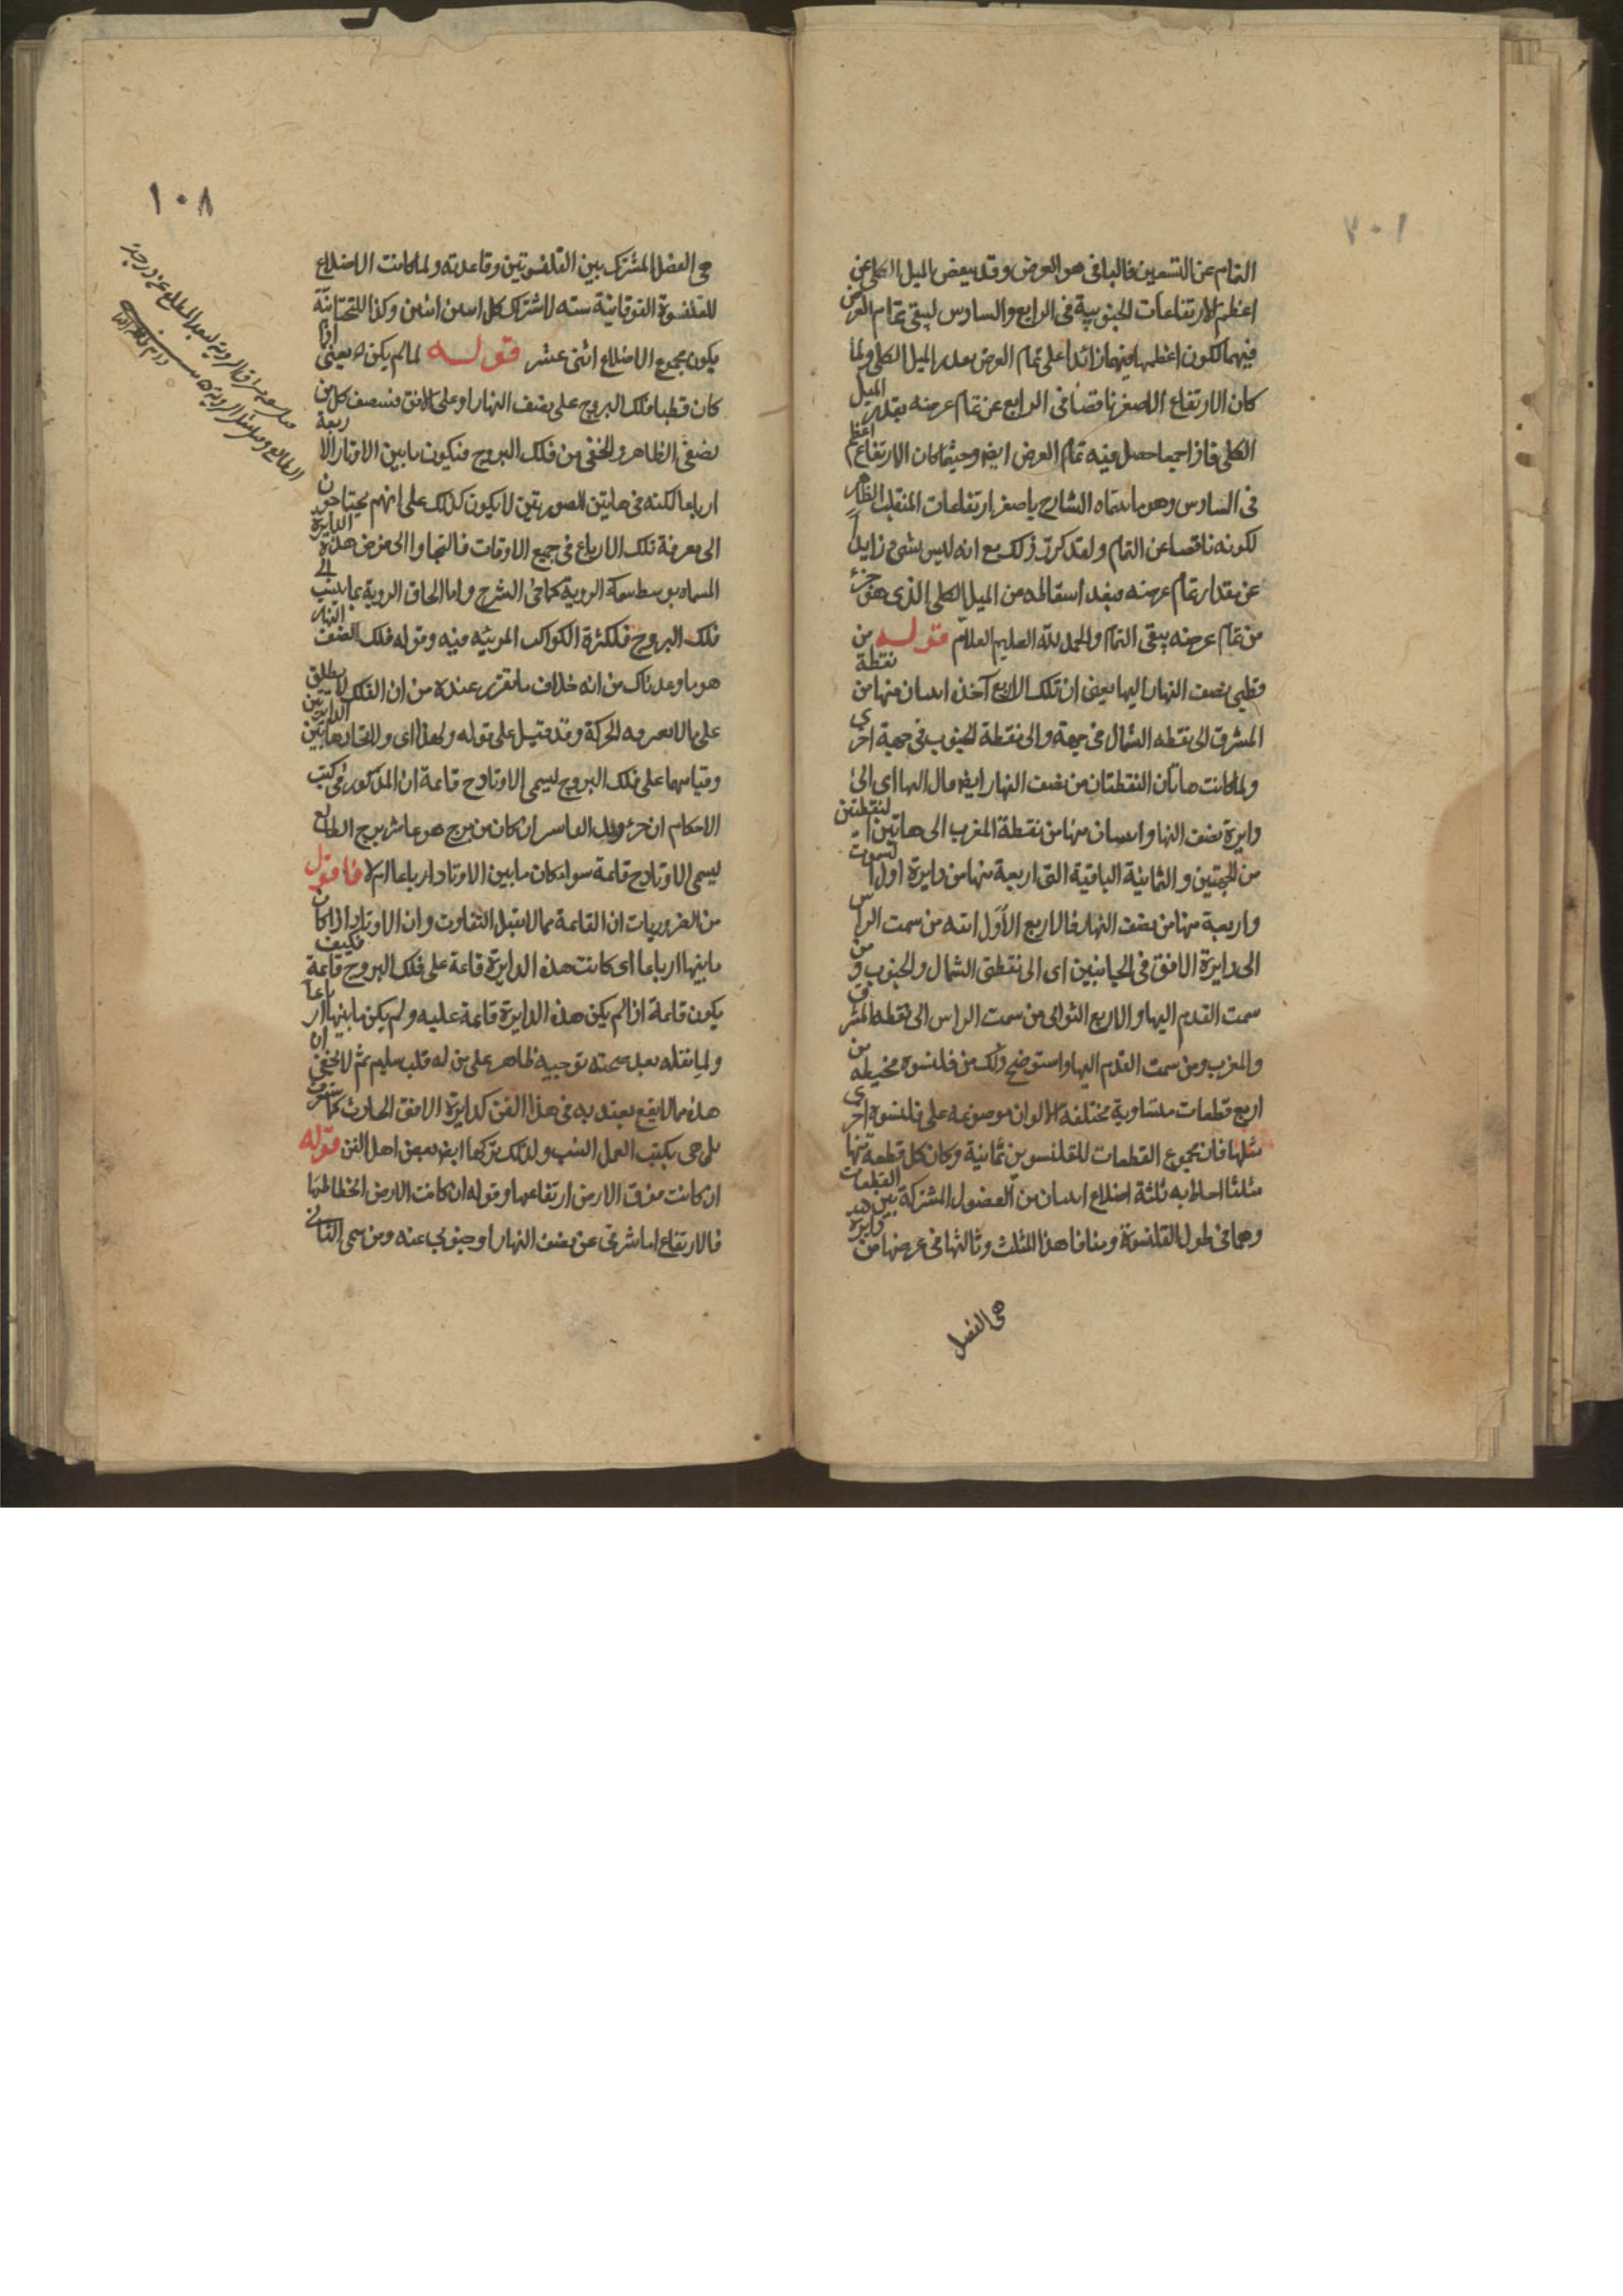 ١٠٧
التمام عن التسعين فالباقى هو العرض وقد ينقص الميل الكلى عن
اعظم الارتفاعات الجنوبية فى الرابع والسادس ليبقى تمام العرض
فيهما لكون اعظمها فيهما زائدا على تمام العرض بقدر الميل الكلى ولما
كان الارتفاع الاصغر ناقصا فى الرابع عن تمام عرضه بقدر الميل
الكلى فاذا جمعا حصل فيه تمام العرض ايضا وحيثما كان الارتفاع اعظم
فى السادس وهو ما سماه الشارح باصغر ارتفاعات المنقلب الظاهر
لكونه ناقصا عن التمام ولقد كرر ذلك مع انه ليس بشىء زايدا
عن مقدار تمام عرضه فبعد اسقاطه من الميل الكلى الذى هو جزء
من تمام عرضه يبقى التمام والحمد لله العليم العلام قوله من
قطبى نصف النهار اليها يعنى ان تلك الاربع آخذ اثنان منها من نقطة
المشرق الى نقطه الشمال فى جهة والى نقطة الجنوب فى جهة اخرى
ولما كانت هاتان النقطتان من نصف النهار ايضا قال اليها اى الى
دايرة نصف النهار واثنان منها من نقطة المغرب الى هاتين النقطتين
من الجهتين والثمانية الباقية التى اربعة منها من دايرة اول السموت
واربعة منها من نصف النهار فالاربع الأوَل ابتدا من سمت الراس
الى دايرة الافق فى الجانبين اى الى نقطتى الشمال والجنوب ومن
سمت القدم اليها والاربع الثوانى من سمت الراس الى نقطه المشرق
والمغرب ومن سمت القدم اليها واستوضح ذلك من قلنسوه مخيطه من
اربع قطعات متساوية مختلفة الالوان موضوعه على قلنسوة اخرى
مثلها فان مجموع القطعات للقلنسوتين ثمانية وكان كل قطعه منها
مثلثا احاط به ثلثة اضلاع اثنان من الفضول المشتركة بين القطعات
وهما فى طول القلنسوة وساقا هذا المثلث وثالثها فى عرضها من دايرة
هى الفصل
١٠٨
هى الفصل المشترك بين القلنسوتين وقاعدته ولما كانت الاضلاع
للقلنسوة الفوقانية سته لاشتراك كل اثنين اثنين وكذا للتحتانية
يكون مجموع الاضلاع اثنى عشر قوله لما لم يكن اه يعنى اذا
كان قطبا فلك البروج على نصف النهار او على الافق فنصف كل من
نصفى الظاهر والخفى من فلك البروج فيكون ما بين الاوتار الاربعة
ارباعا لكنه فى هاتين الصورتين لا يكون كذلك على انهم يحتاجون
الى معرفة تلك الارباع فى جميع الاوقات فالتجاوا الى فرض هذه الدايرة
المسماه بوسط سماء الروية كما فى الشرح واما الحاق الروية بما ينسب الى
فلك البروج فلكثرة الكواكب المرئيه فيه وقوله فلك نصف النهار
هو ما وعدناك من انه خلاف ما تقرر عنده من ان الفلك لا يطلق
على ما لا يعرف له الحركة وقد قيل على قوله ولهذا اى ولاتحاد هاتين الدايرتين
وقيامهما على فلك البروج ليسمى الاوتاد ح قايمة ان المذكور فى كتب
الاحكام ان جزء وتد العاشر ان كان من برج هو عاشر برج الطالع
ليسمى الاوتاد ح قايمة سواء كان ما بين الاوتاد ارباعا ام لا فاقول
من الضروريات ان القايمة مما لا يقبل التفاوت وان الاوتاد اذا كان
ما بينها ارباعا اى كانت هذه الدايرة قايمة على فلك البروج قايمة فكيف
يكون قايمة اذا لم يكن هذه الدايرة قايمة عليه ولم يكن ما بينها ارباعا
ولما نقله بعد صحته توجيه ظاهر على من له قلب سليم ثم لا يخفى ان
هذه مما لا يقع يعتد به فى هذا الفن كدايرة الافق الحادث كما ستعرف
بل هى بكتب العمل انسب ولذلك تركها ايضا بعض اهل الفن قوله
ان كانت فوق الارض ارتفاعها وقوله ان كانت الارض انحطاطها
فالارتفاع اما شرقى عن نصف النهار او جنوبى عنه ومن سمى الثانى